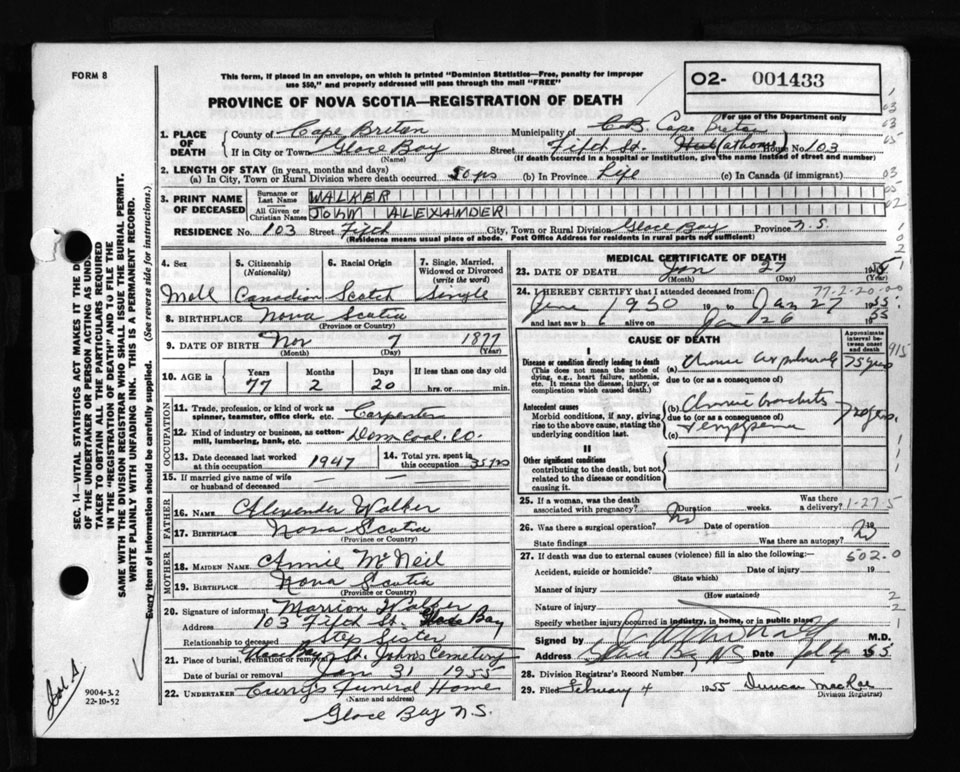 FORM 8
This form, if placed in an envelope, on which is printed "Dominion Statistics—Free, penalty for improper
use $50," and properly addressed will pass through the mail "FREE"
O2- 001433
For use of the Department only
PROVINCE OF NOVA SCOTIA—REGISTRATION OF DEATH
1. PLACE OF DEATH
County of Cape Breton Municipality of C.B. Cape Breton
If in City or Town Glace Bay Street Fifth St. (at home) House No. 103
(Name) (If death occurred in a hospital or institution, give the name instead of street and number)
2. LENGTH OF STAY (in years, months and days)
(a) In City, Town or Rural Division where death occurred 50 yrs (b) In Province Life (c) In Canada (if immigrant)
3. PRINT NAME OF DECEASED
Surname or Last Name WALKER
All Given or Christian Names JOHN ALEXANDER
RESIDENCE No. 103 Street Fifth City, Town or Rural Division Glace Bay Province N.S.
(Residence means usual place of abode. Post Office Address for residents in rural parts not sufficient)
4. Sex 5. Citizenship (Nationality) 6. Racial Origin 7. Single, Married, Widowed or Divorced (write the word)
Male Canadian Scotch Single
8. BIRTHPLACE Nova Scotia
(Province or Country)
9. DATE OF BIRTH Nov 7 1877
(Month) (Day) (Year)
10. AGE in Years Months Days If less than one day
77 2 20 hrs. or min.
OCCUPATION
11. Trade, profession, or kind of work as spinner, teamster, office clerk, etc. Carpenter
12. Kind of industry or business, as cotton-mill, lumbering, bank, etc. Dom. Coal. Co.
13. Date deceased last worked at this occupation 1947 14. Total yrs. spent in this occupation 35 yrs
15. If married give name of wife or husband of deceased — —
FATHER
16. NAME Alexander Walker
17. BIRTHPLACE Nova Scotia
(Province or Country)
MOTHER
18. MAIDEN NAME Annie McNeil
19. BIRTHPLACE Nova Scotia
(Province or Country)
20. Signature of informant Marrion Walker
Address 103 Fifth St. Glace Bay
Relationship to deceased Step Sister
21. Place of burial, cremation or removal Glace Bay St. Johns Cemetery
Date of burial or removal Jan 31 1955
22. UNDERTAKER Currys Funeral Home
(Name and address)
Glace Bay N.S.
MEDICAL CERTIFICATE OF DEATH
23. DATE OF DEATH Jan 27 1955
(Month) (Day)
24. I HEREBY CERTIFY that I attended deceased from:
77-2-20-00
June 1950 19 to Jan 27 1955
and last saw h alive on Jan 26 1955
CAUSE OF DEATH
Approximate interval between onset and death
915
Disease or condition directly leading to death
(This does not mean the mode of dying, e.g., heart failure, asthenia, etc. It means the disease, injury, or complication which caused death.)
(a) Chronic
due to (or as a consequence of)
Antecedent causes
Morbid conditions, if any, giving rise to the above cause, stating the underlying condition last.
(b) Chronic bronchitis
due to (or as a consequence of)
(c)
II
Other significant conditions
contributing to the death, but not related to the disease or condition causing it.
25. If a woman, was the death associated with pregnancy? Duration weeks. Was there a delivery?
1-27-5
26. Was there a surgical operation? No Date of operation 19
State findings Was there an autopsy? No
27. If death was due to external causes (violence) fill in also the following:—
502.0
Accident, suicide or homicide? Date of injury 19
(State which)
Manner of injury
(How sustained)
Nature of injury
Specify whether injury occurred in industry, in home, or in public place
Signed by M.D.
Address Glace Bay NS Date Feb 4 1955
28. Division Registrar's Record Number
29. Filed February 4 1955 Duncan MacRae
(Division Registrar)
SEC. 14—VITAL STATISTICS ACT MAKES IT THE
OF THE UNDERTAKER OR PERSON ACTING AS UNDER-
TAKER TO OBTAIN ALL THE PARTICULARS REQUIRED
IN THE "REGISTRATION OF DEATH" AND TO FILE THE
SAME WITH THE DIVISION REGISTRAR WHO SHALL ISSUE THE BURIAL PERMIT.
WRITE PLAINLY WITH UNFADING INK. THIS IS A PERMANENT RECORD.
Every item of information should be carefully supplied. (See reverse side for instructions.)
9004-3.2
22-10-52